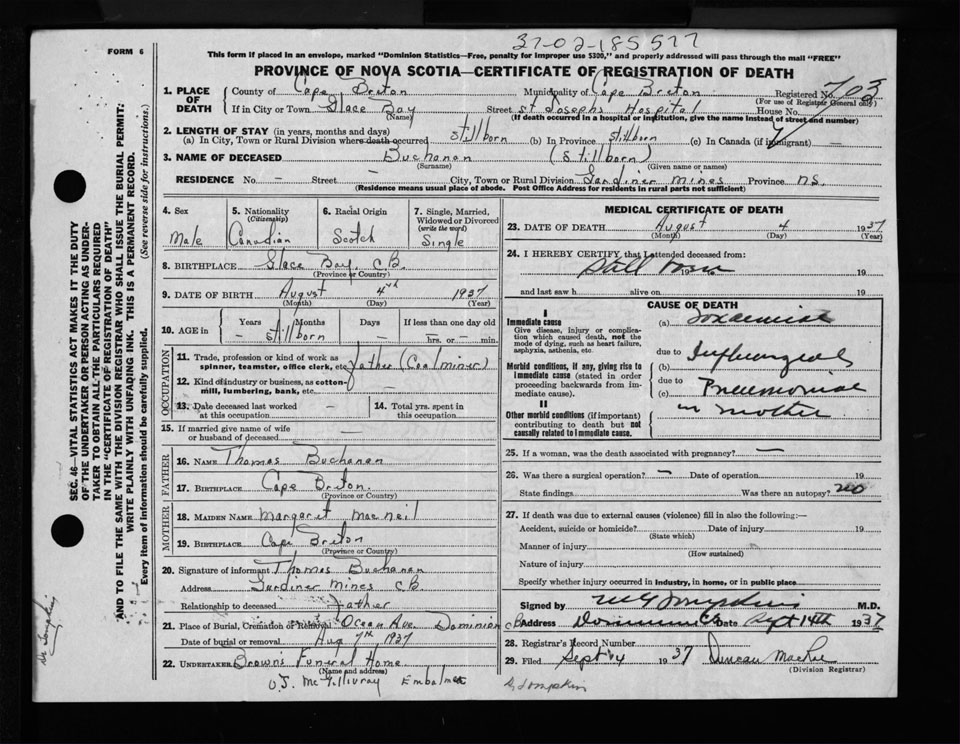 37-02-185577
FORM 6
This form if placed in an envelope, marked "Dominion Statistics—Free, penalty for improper use $300," and properly addressed will pass through the mail "FREE"
PROVINCE OF NOVA SCOTIA—CERTIFICATE OF REGISTRATION OF DEATH
1. PLACE OF DEATH County of Cape Breton Municipality of Cape Breton Registered No. 703
(For use of Registrar General only)
If in City or Town Glace Bay Street St Josephs Hospital House No.
(Name) (If death occurred in a hospital or institution, give the name instead of street and number)
2. LENGTH OF STAY (in years, months and days)
(a) In City, Town or Rural Division where death occurred stillborn (b) In Province stillborn (c) In Canada (if immigrant) —
3. NAME OF DECEASED Buchanan (Stillborn)
(Surname) (Given name or names)
RESIDENCE No. — Street — City, Town or Rural Division Gardiner Mines Province NS.
(Residence means usual place of abode. Post Office Address for residents in rural parts not sufficient)
4. Sex Male
5. Nationality (Citizenship) Canadian
6. Racial Origin Scotch
7. Single, Married, Widowed or Divorced (write the word) Single
8. BIRTHPLACE Glace Bay, CB.
(Province or Country)
9. DATE OF BIRTH August 4th 1937
(Month) (Day) (Year)
10. AGE in Years Months Days If less than one day
— stillborn — — hrs. or — min.
OCCUPATION
11. Trade, profession or kind of work as spinner, teamster, office clerk, etc. father (Coal miner)
12. Kind of industry or business, as cotton-mill, lumbering, bank, etc. —
13. Date deceased last worked at this occupation —
14. Total yrs. spent in this occupation
15. If married give name of wife or husband of deceased —
FATHER
16. NAME Thomas Buchanan
17. BIRTHPLACE Cape Breton.
(Province or Country)
MOTHER
18. MAIDEN NAME Margaret MacNeil
19. BIRTHPLACE Cape Breton
(Province or Country)
20. Signature of informant Thomas Buchanan
Address Gardiner Mines CB
Relationship to deceased father
21. Place of Burial, Cremation or Removal Ocean Ave. Dominion CB
Date of burial or removal Aug 7th 1937
22. UNDERTAKER Brown's Funeral Home
O.J. McGillivray Embalmer
MEDICAL CERTIFICATE OF DEATH
23. DATE OF DEATH August 4 1937
(Month) (Day) (Year)
24. I HEREBY CERTIFY, that I attended deceased from:
Still born 19
and last saw h alive on 19
CAUSE OF DEATH
I
Immediate cause
Give disease, injury or complication which caused death, not the mode of dying, such as heart failure, asphyxia, asthenia, etc.
(a) Toxaemia
due to
Morbid conditions, if any, giving rise to immediate cause (stated in order proceeding backwards from immediate cause).
(b) Influenzial
due to
(c) Pneumonia
in mother
II
Other morbid conditions (if important) contributing to death but not causally related to immediate cause.
25. If a woman, was the death associated with pregnancy? —
26. Was there a surgical operation? — Date of operation — 19
State findings Was there an autopsy? no
27. If death was due to external causes (violence) fill in also the following:—
Accident, suicide or homicide? Date of injury 19
(State which)
Manner of injury
(How sustained)
Nature of injury
Specify whether injury occurred in industry, in home, or in public place
Signed by M.D.
Address Dominion Date Sept 14th 1937
28. Registrar's Record Number
29. Filed Sept 14 1937 Duncan MacRae
(Division Registrar)
Dr Tompkins
SEC. 46—VITAL STATISTICS ACT MAKES IT THE DUTY
OF THE UNDERTAKER OR PERSON ACTING AS UNDER-
TAKER TO OBTAIN ALL THE PARTICULARS REQUIRED
IN THE "CERTIFICATE OF REGISTRATION OF DEATH"
AND TO FILE THE SAME WITH THE DIVISION REGISTRAR WHO SHALL ISSUE THE BURIAL PERMIT.
WRITE PLAINLY WITH UNFADING INK. THIS IS A PERMANENT RECORD.
Every item of information should be carefully supplied. (See reverse side for instructions.)